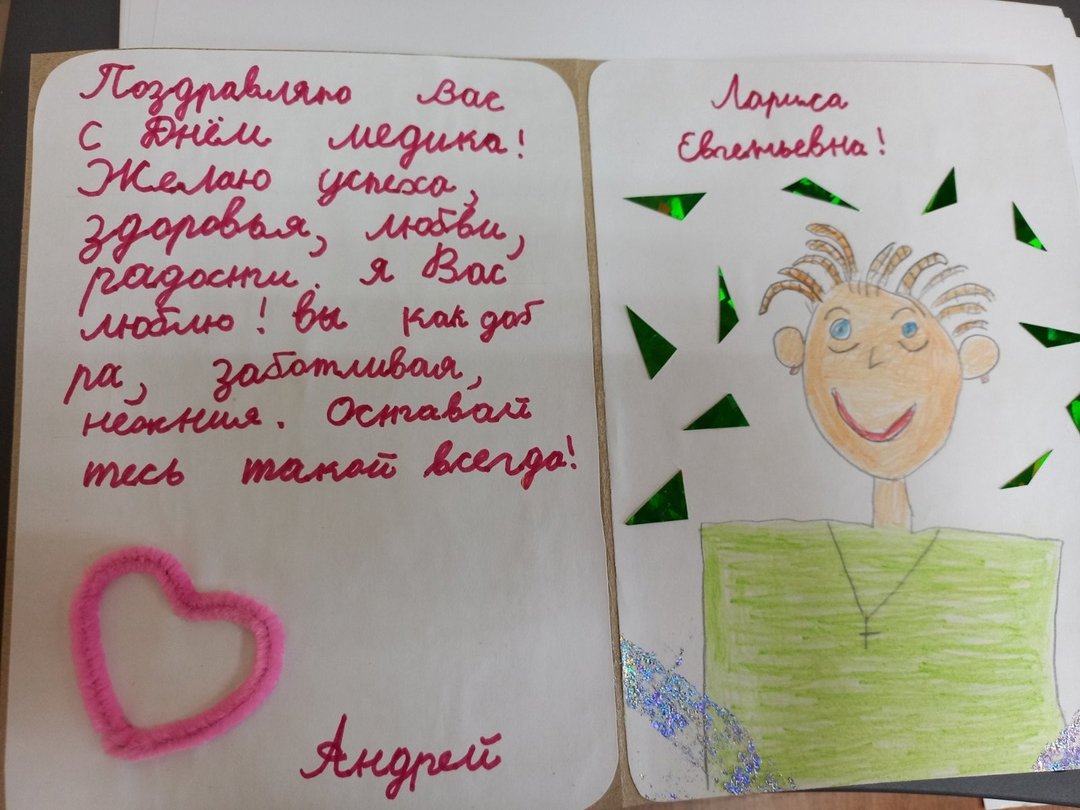 Поздравляю Вас
с Днём медика!
Желаю успеха,
здоровья, любви,
радости. я Вас
люблю! вы как доб
ра, заботливая,
нежния. Оставай
тесь такой всегда!
Андрей
Лариса
Евгеньевна!